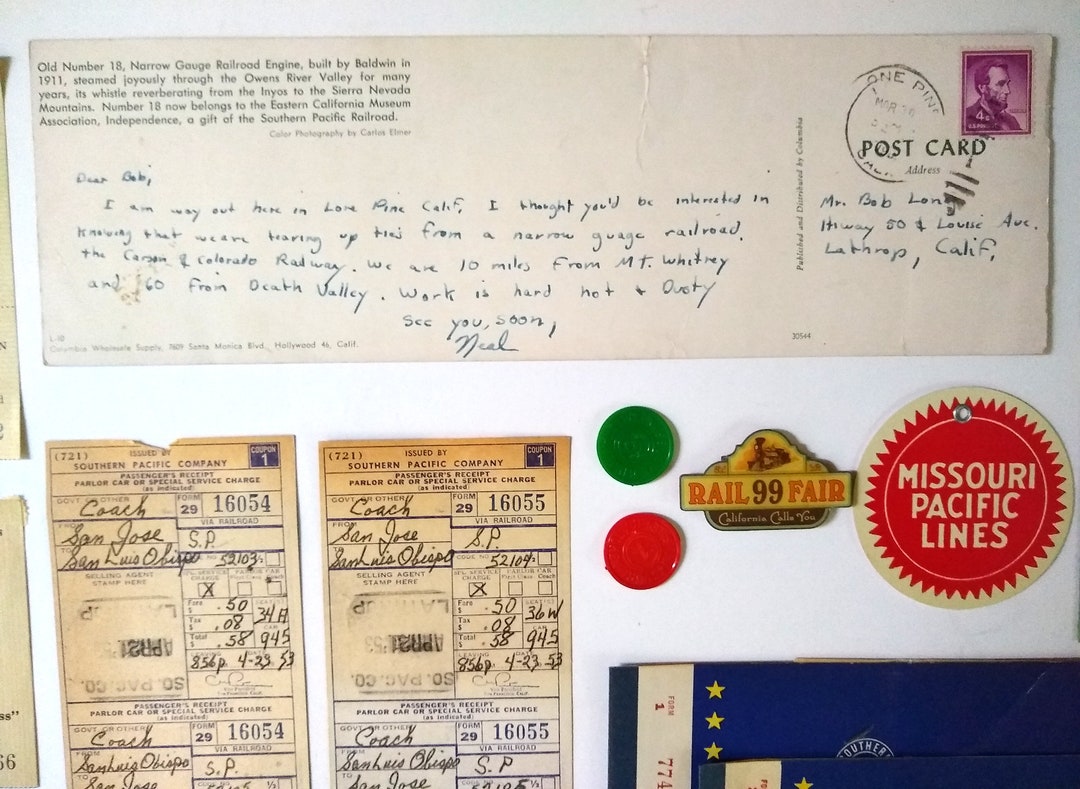 Old Number 18, Narrow Gauge Railroad Engine, built by Baldwin in
1911, steamed joyously through the Owens River Valley for many
years, its whistle reverberating from the Inyos to the Sierra Nevada
Mountains. Number 18 now belongs to the Eastern California Museum
Association, Independence, a gift of the Southern Pacific Railroad.
Color Photography by Carlos Elmer
Dear Bob,
I am way out here in Lone Pine Calif, I thought you'd be interested in
Knowing that we are tearing up ties from a narrow guage railroad.
the Carson & Colorado Railway. We are 10 miles From Mt. Whitney
and 60 From Death Valley. Work is hard hot & Dusty
See you, soon,
Neal
L-10
Columbia Wholesale Supply, 7609 Santa Monica Blvd., Hollywood 46, Calif.
Published and Distributed by Columbia
ONE PINE
MAR
4¢
POST CARD
Address
Mr. Bob Lon
Hiway 50 & Louise Ave.
Lathrop, Calif,
30544
(721) ISSUED BY
SOUTHERN PACIFIC COMPANY
COUPON 1
PASSENGER'S RECEIPT
PARLOR CAR OR SPECIAL SERVICE CHARGE
(as indicated)
GOVT OR OTHER
Coach
FORM 29 16054
VIA RAILROAD
FROM
San Jose S.P.
TO
San Luis Obispo 52103
SELLING AGENT
STAMP HERE
CHARGE
X
Fare $ .50
34A
Tax $ .08
Total $ .58 945
856p 4-23 53
SO. PAC. CO.
PASSENGER'S RECEIPT
PARLOR CAR OR SPECIAL SERVICE CHARGE
(as indicated)
GOVT OR OTHER
Coach
FORM 29 16054
VIA RAILROAD
FROM
San Luis Obispo S.P.
TO
San Jose
(721) ISSUED BY
SOUTHERN PACIFIC COMPANY
COUPON 1
PASSENGER'S RECEIPT
PARLOR CAR OR SPECIAL SERVICE CHARGE
(as indicated)
GOVT OR OTHER
Coach
FORM 29 16055
VIA RAILROAD
FROM
San Jose S.P.
TO
San Luis Obispo CODE NO. 52104
SELLING AGENT
STAMP HERE
SPL. SERVICE CHARGE
PARLOR CAR
First Class Coach
X
Fare $ .50
36W
Tax $ .08
Total $ .58 945
856p 4-23 53
LATHROP
APR 21 '53
SO. PAC. CO.
PASSENGER'S RECEIPT
PARLOR CAR OR SPECIAL SERVICE CHARGE
(as indicated)
GOVT OR OTHER
Coach
FORM 29 16055
VIA RAILROAD
FROM
San Luis Obispo S.P
TO
San Jose
RAIL 99 FAIR
California Calls You
MISSOURI
PACIFIC
LINES
FORM
1
774
OUTHER